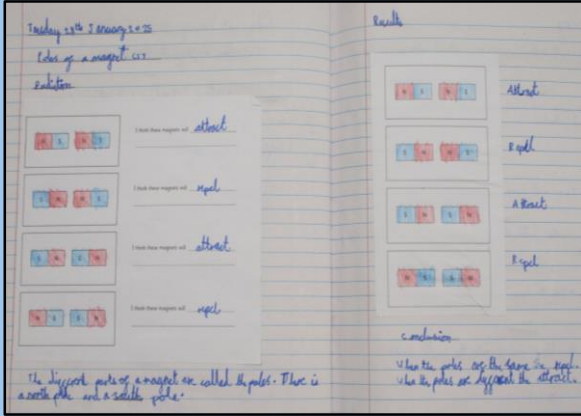 Tuesday 28th January 2025
Poles of a magnet
I think these magnets will attract
I think these magnets will repel
I think these magnets will attract
I think these magnets will repel
The different parts of a magnet are called the poles. There is
a north pole and a south pole.
Results
N S N S Attract
S N N S Repel
S N S N Attract
N S S N Repel
Conclusion
When the poles are the same the repel.
When the poles are different the attract.